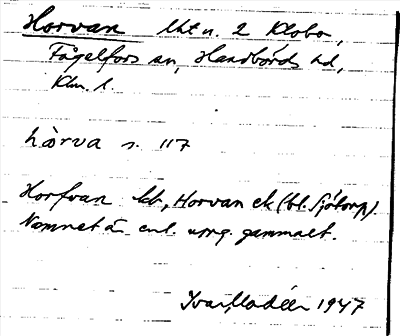 Horvan lht u. 2 Klobo,
Fågelfors sn, Handbörds hd,
Klm. l.
hòrva s. 117
Horfvan kb, Horvan ek (bl. Sjötorp).
Namnet är enl. uppg. gammalt.
Ivar Modéer 1947